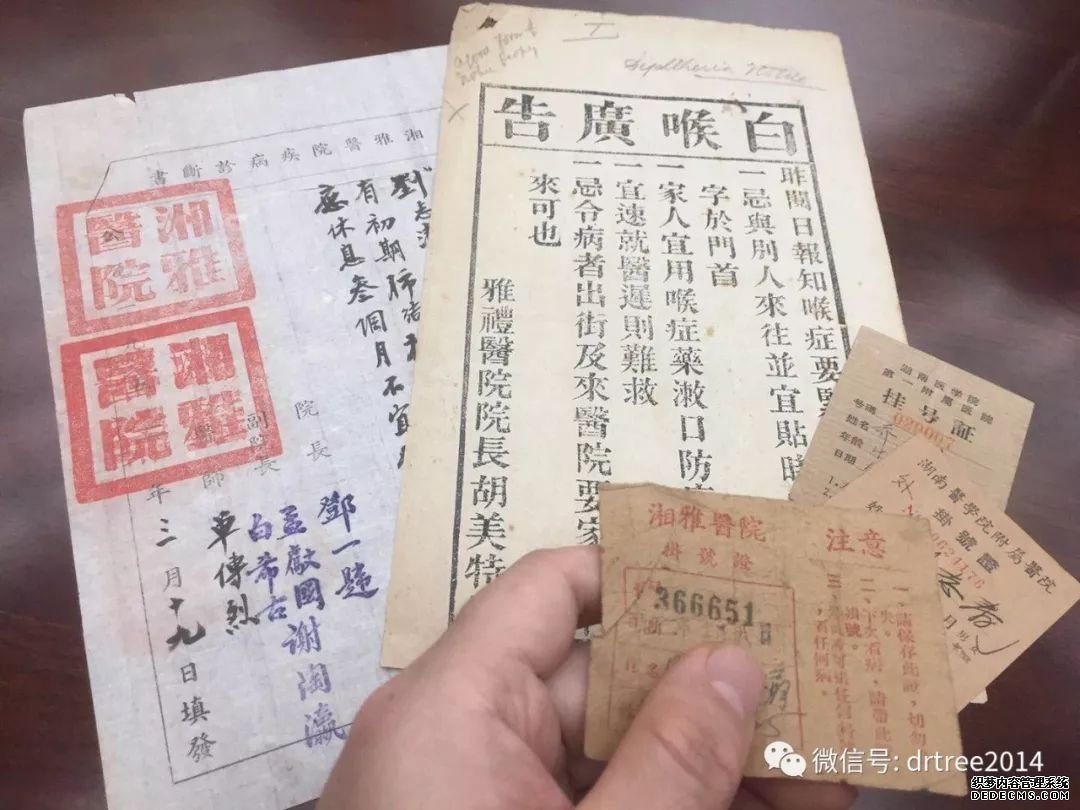 湘雅醫院疾病診斷書
劉志
有初期肺
應休息叁個月不宜
湘雅醫院
湘雅醫院
院長
鄧一韙
副院長
孟獻國 謝陶瀛
白希古
醫師
卓傳烈
年三月十九日填發
Diphtheria Notice
白喉廣告
昨聞日報知喉症要
一忌與別人來往並宜貼時
字於門首
一家人宜用喉症藥漱口防
一宜速就醫遲則難救
一忌令病者出街及來醫院要家
來可也
雅禮醫院院長胡美特
湖南医学院
第一附属医院
挂号証
号碼 020007
姓名
年齡
日期
湖南醫學院附屬醫院
掛號證
湘雅醫院
掛號證
366651
注意
一、請保存此證,切勿
失。
二、下次看病,請帶此
號。
,看任何病。
微信号: drtree2014
织梦内容管理系统
DEDECMS.COM